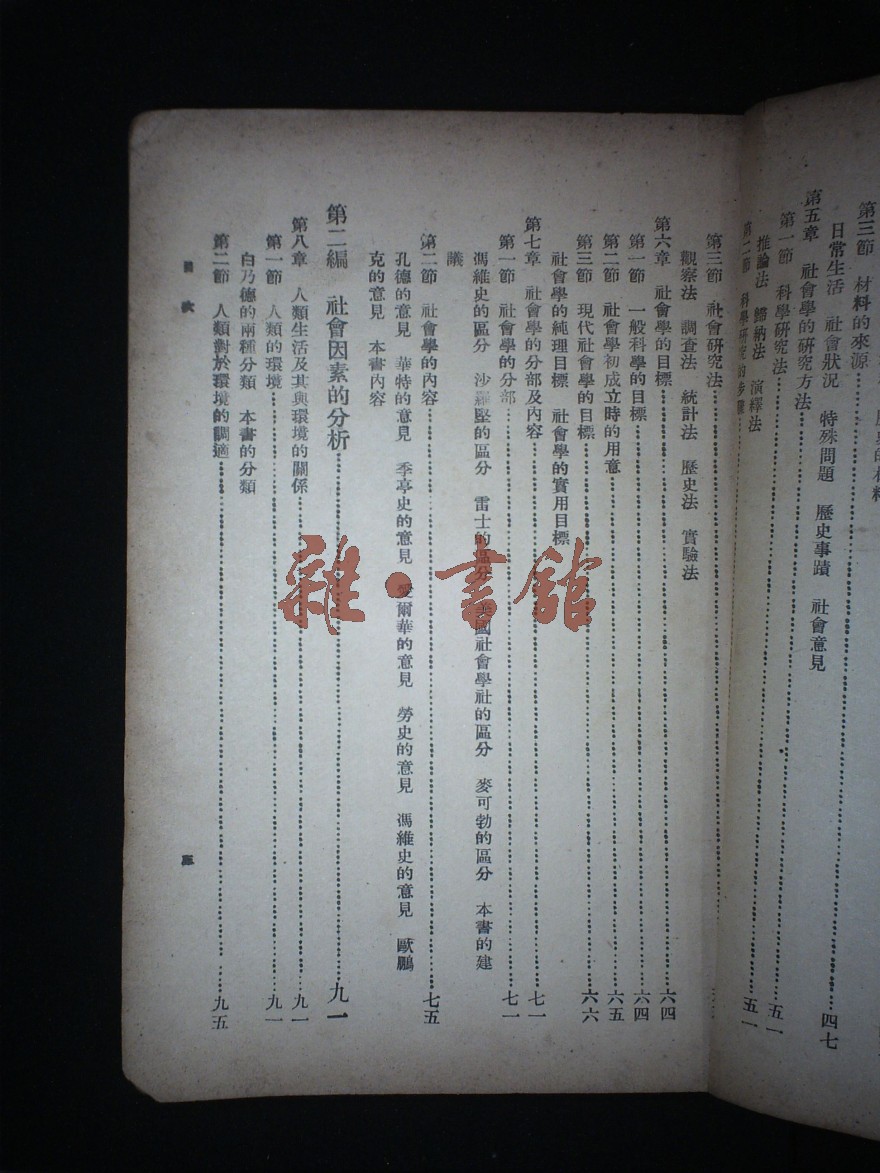 歷史的材料
第三節 材料的來源
日常生活 社會狀況 特殊問題 歷史事蹟 社會意見
第五章 社會學的研究方法……四七
第一節 科學研究法……五一
推論法 歸納法 演繹法
第二節 科學研究的步驟……五一
第三節 社會研究法……
觀察法 調查法 統計法 歷史法 實驗法
第六章 社會學的目標……六四
第一節 一般科學的目標……六四
第二節 社會學初成立時的用意……六五
第三節 現代社會學的目標……六六
社會學的純理目標 社會學的實用目標
第七章 社會學的分部及內容……七一
第一節 社會學的分部……七一
馮維史的區分 沙羅堅的區分 雷士的區分 美國社會學社的區分 麥可勃的區分 本書的建
議
第二節 社會學的內容……七五
孔德的意見 華特的意見 季亭史的意見 愛爾華的意見 勞史的意見 馮維史的意見 歐鵬
克的意見 本書內容
第二編 社會因素的分析……九一
第八章 人類生活及其與環境的關係……九一
第一節 人類的環境……九一
白乃德的兩種分類 本書的分類
第二節 人類對於環境的調適……九五
目次
三
雜·書館